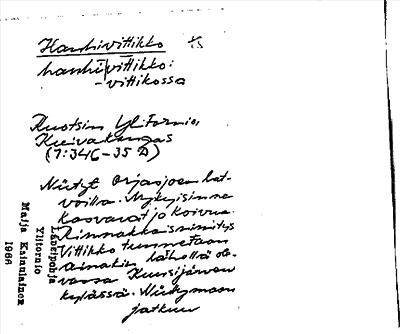 Hanhivittikko ts
hanhi|vittikko:
-vittikossa
Ruotsin Ylitornio,
Kuivakangas
(7:34C-35D)
Niityt Orjasjoen lat-
voilla. Nykyisinne
kasvavat jo koivua.
Rinnakkaisnimitys
Vittikko tunnetaan
ainakin lähellä ole-
vassa Kuusijärven
kylässä. Niittymaan
jatkuu
Länsipohja
Ylitornio
Maija Kainulainen
1966